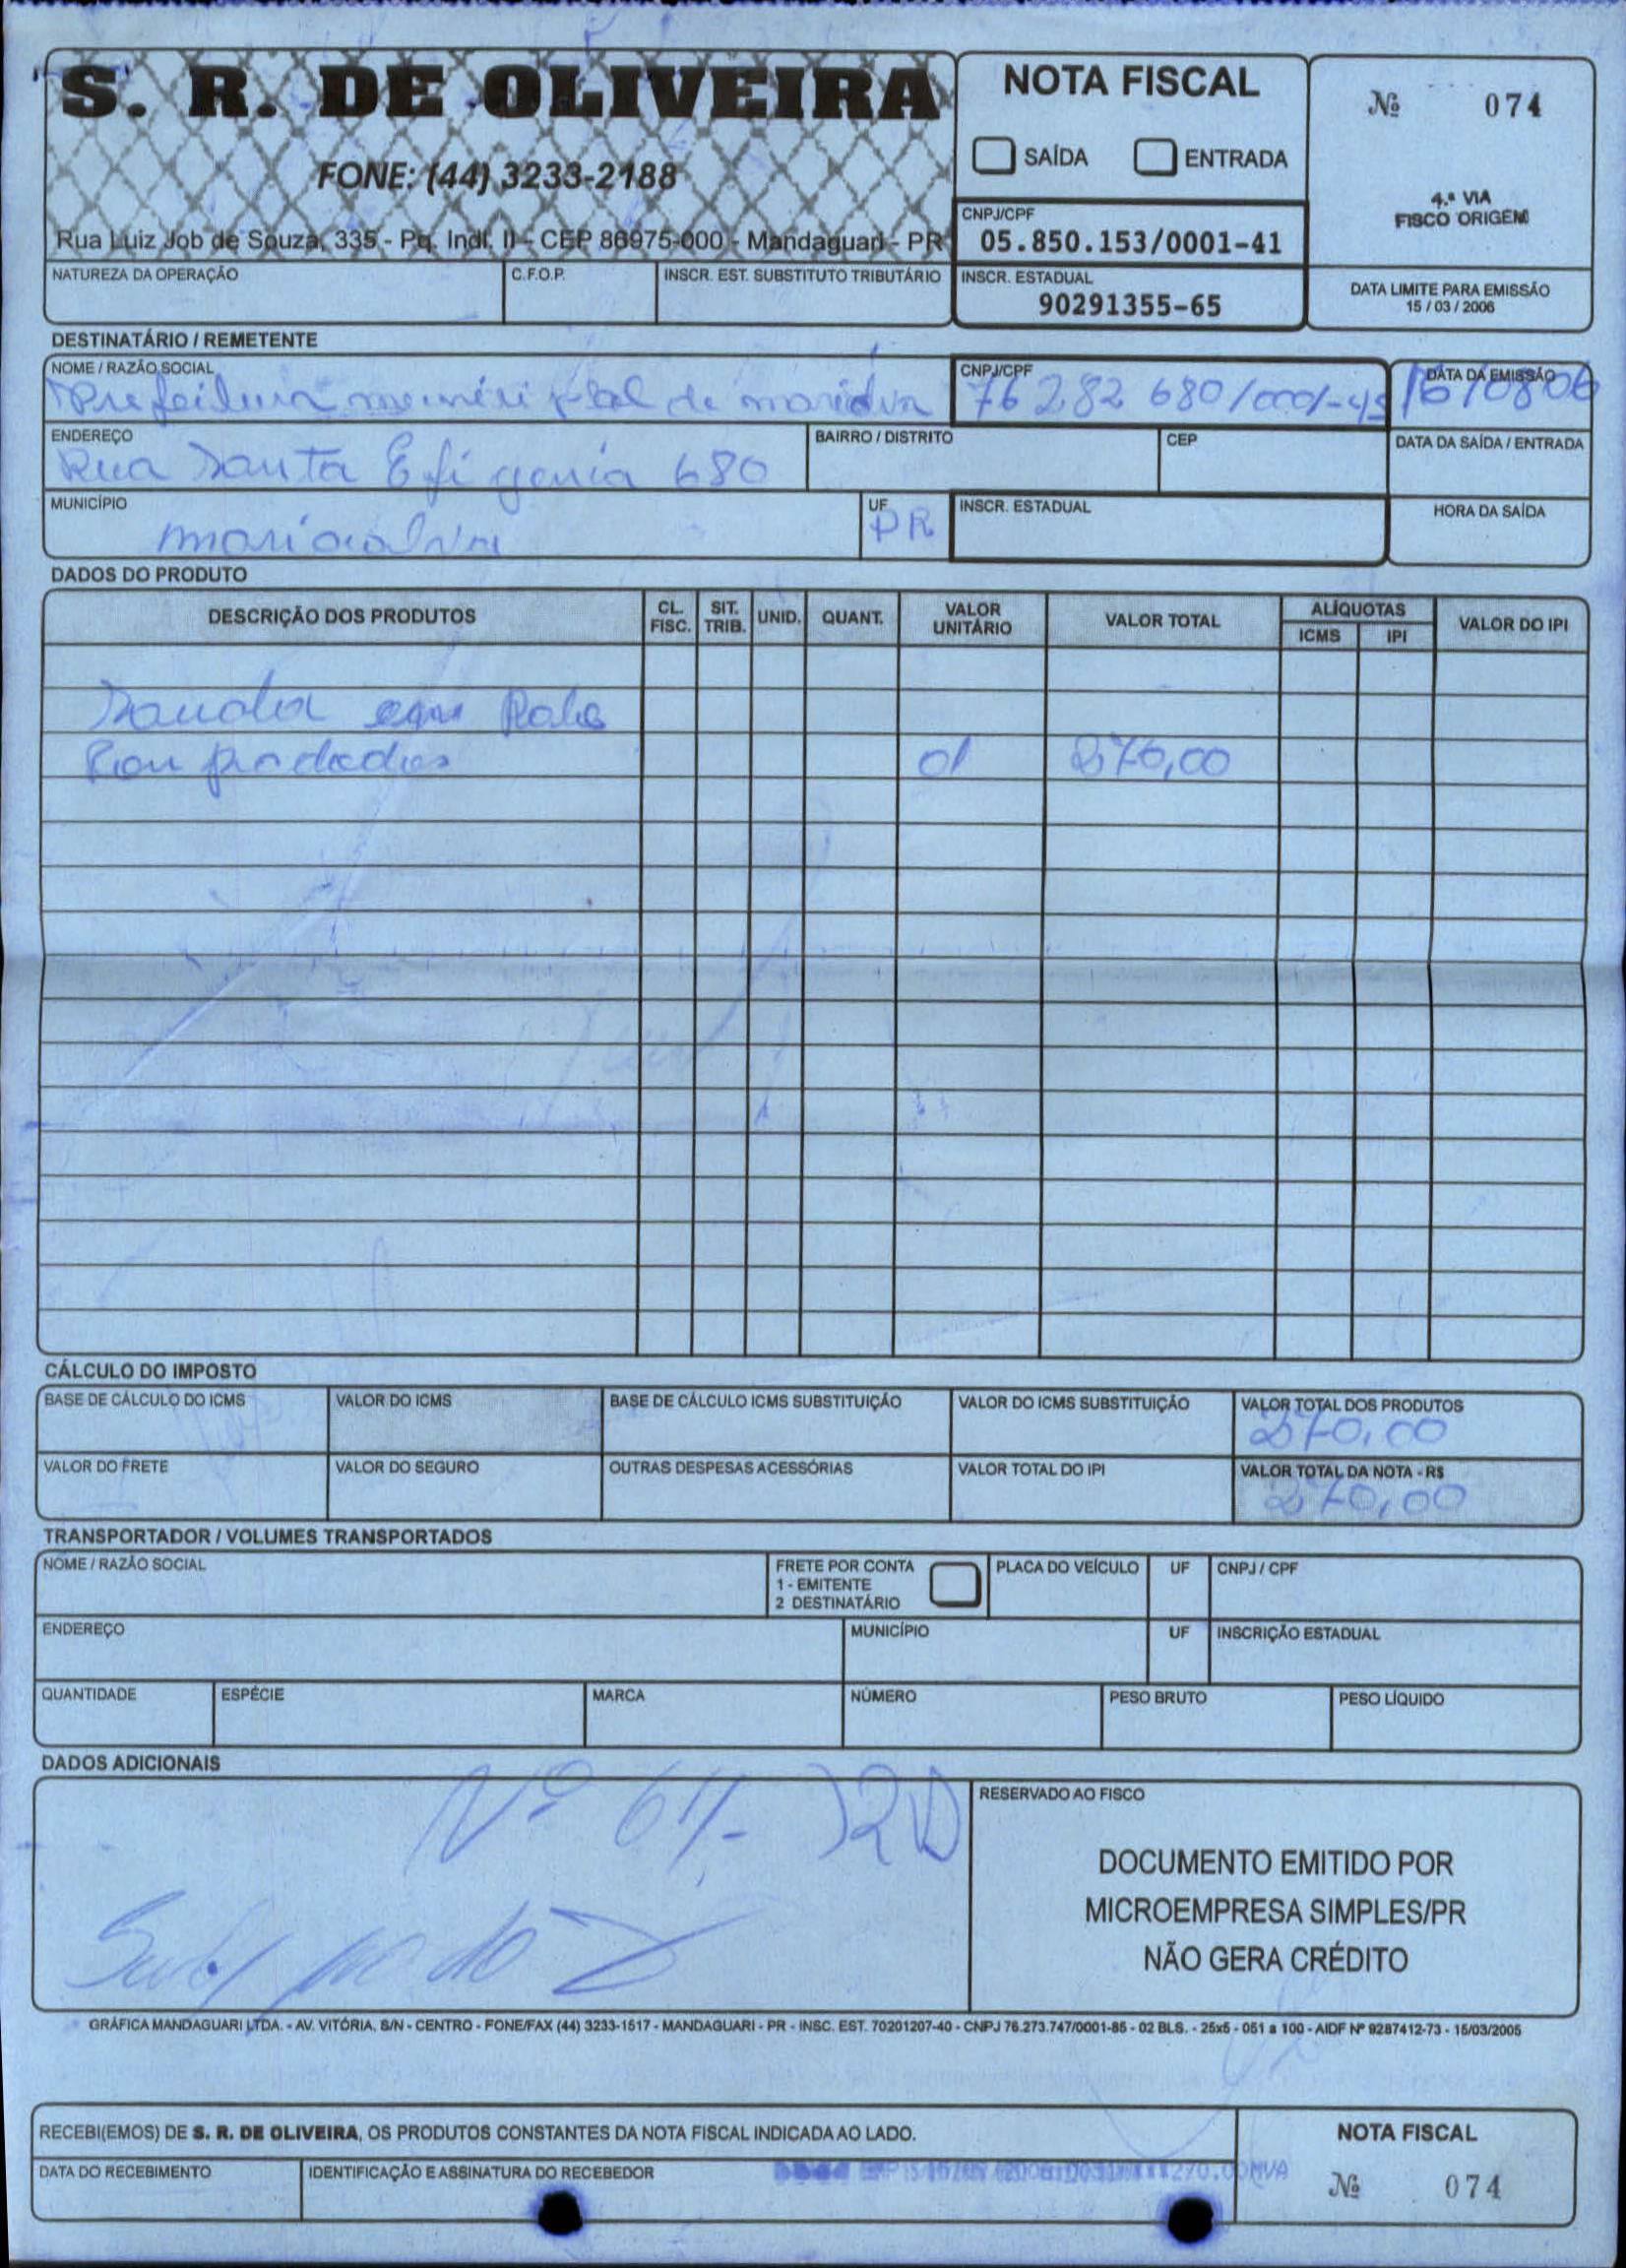 S. R. DE OLIVEIRA
FONE: (44) 3233-2188
Rua Luiz Job de Souza, 335 - Pq. Indl. II - CEP 86975-000 - Mandaguari - PR
NOTA FISCAL
SAÍDA ENTRADA
CNPJ/CPF
05.850.153/0001-41
INSCR. ESTADUAL
90291355-65
Nº 074
4.ª VIA
FISCO ORIGEM
DATA LIMITE PARA EMISSÃO
15 / 03 / 2006
NATUREZA DA OPERAÇÃO C.F.O.P. INSCR. EST. SUBSTITUTO TRIBUTÁRIO
DESTINATÁRIO / REMETENTE
NOME / RAZÃO SOCIAL CNPJ/CPF DATA DA EMISSÃO
Prefeitura de 76 282 680/0001-45
ENDEREÇO BAIRRO / DISTRITO CEP DATA DA SAÍDA / ENTRADA
Rua Santa Efigenia 680
MUNICÍPIO UF INSCR. ESTADUAL HORA DA SAÍDA
PR
DADOS DO PRODUTO
DESCRIÇÃO DOS PRODUTOS CL. FISC. SIT. TRIB. UNID. QUANT. VALOR UNITÁRIO VALOR TOTAL ALÍQUOTAS VALOR DO IPI
ICMS IPI
01 270,00
CÁLCULO DO IMPOSTO
BASE DE CÁLCULO DO ICMS VALOR DO ICMS BASE DE CÁLCULO ICMS SUBSTITUIÇÃO VALOR DO ICMS SUBSTITUIÇÃO VALOR TOTAL DOS PRODUTOS
270,00
VALOR DO FRETE VALOR DO SEGURO OUTRAS DESPESAS ACESSÓRIAS VALOR TOTAL DO IPI VALOR TOTAL DA NOTA - R$
270,00
TRANSPORTADOR / VOLUMES TRANSPORTADOS
NOME / RAZÃO SOCIAL FRETE POR CONTA PLACA DO VEÍCULO UF CNPJ / CPF
1 - EMITENTE
2 DESTINATÁRIO
ENDEREÇO MUNICÍPIO UF INSCRIÇÃO ESTADUAL
QUANTIDADE ESPÉCIE MARCA NÚMERO PESO BRUTO PESO LÍQUIDO
DADOS ADICIONAIS
Nº
RESERVADO AO FISCO
DOCUMENTO EMITIDO POR
MICROEMPRESA SIMPLES/PR
NÃO GERA CRÉDITO
GRÁFICA MANDAGUARI LTDA. - AV. VITÓRIA, S/N - CENTRO - FONE/FAX (44) 3233-1517 - MANDAGUARI - PR - INSC. EST. 70201207-40 - CNPJ 76.273.747/0001-85 - 02 BLS. - 25x5 - 051 a 100 - AIDF Nº 9287412-73 - 15/03/2005
RECEBI(EMOS) DE S. R. DE OLIVEIRA, OS PRODUTOS CONSTANTES DA NOTA FISCAL INDICADA AO LADO.
DATA DO RECEBIMENTO IDENTIFICAÇÃO E ASSINATURA DO RECEBEDOR
NOTA FISCAL
Nº 074